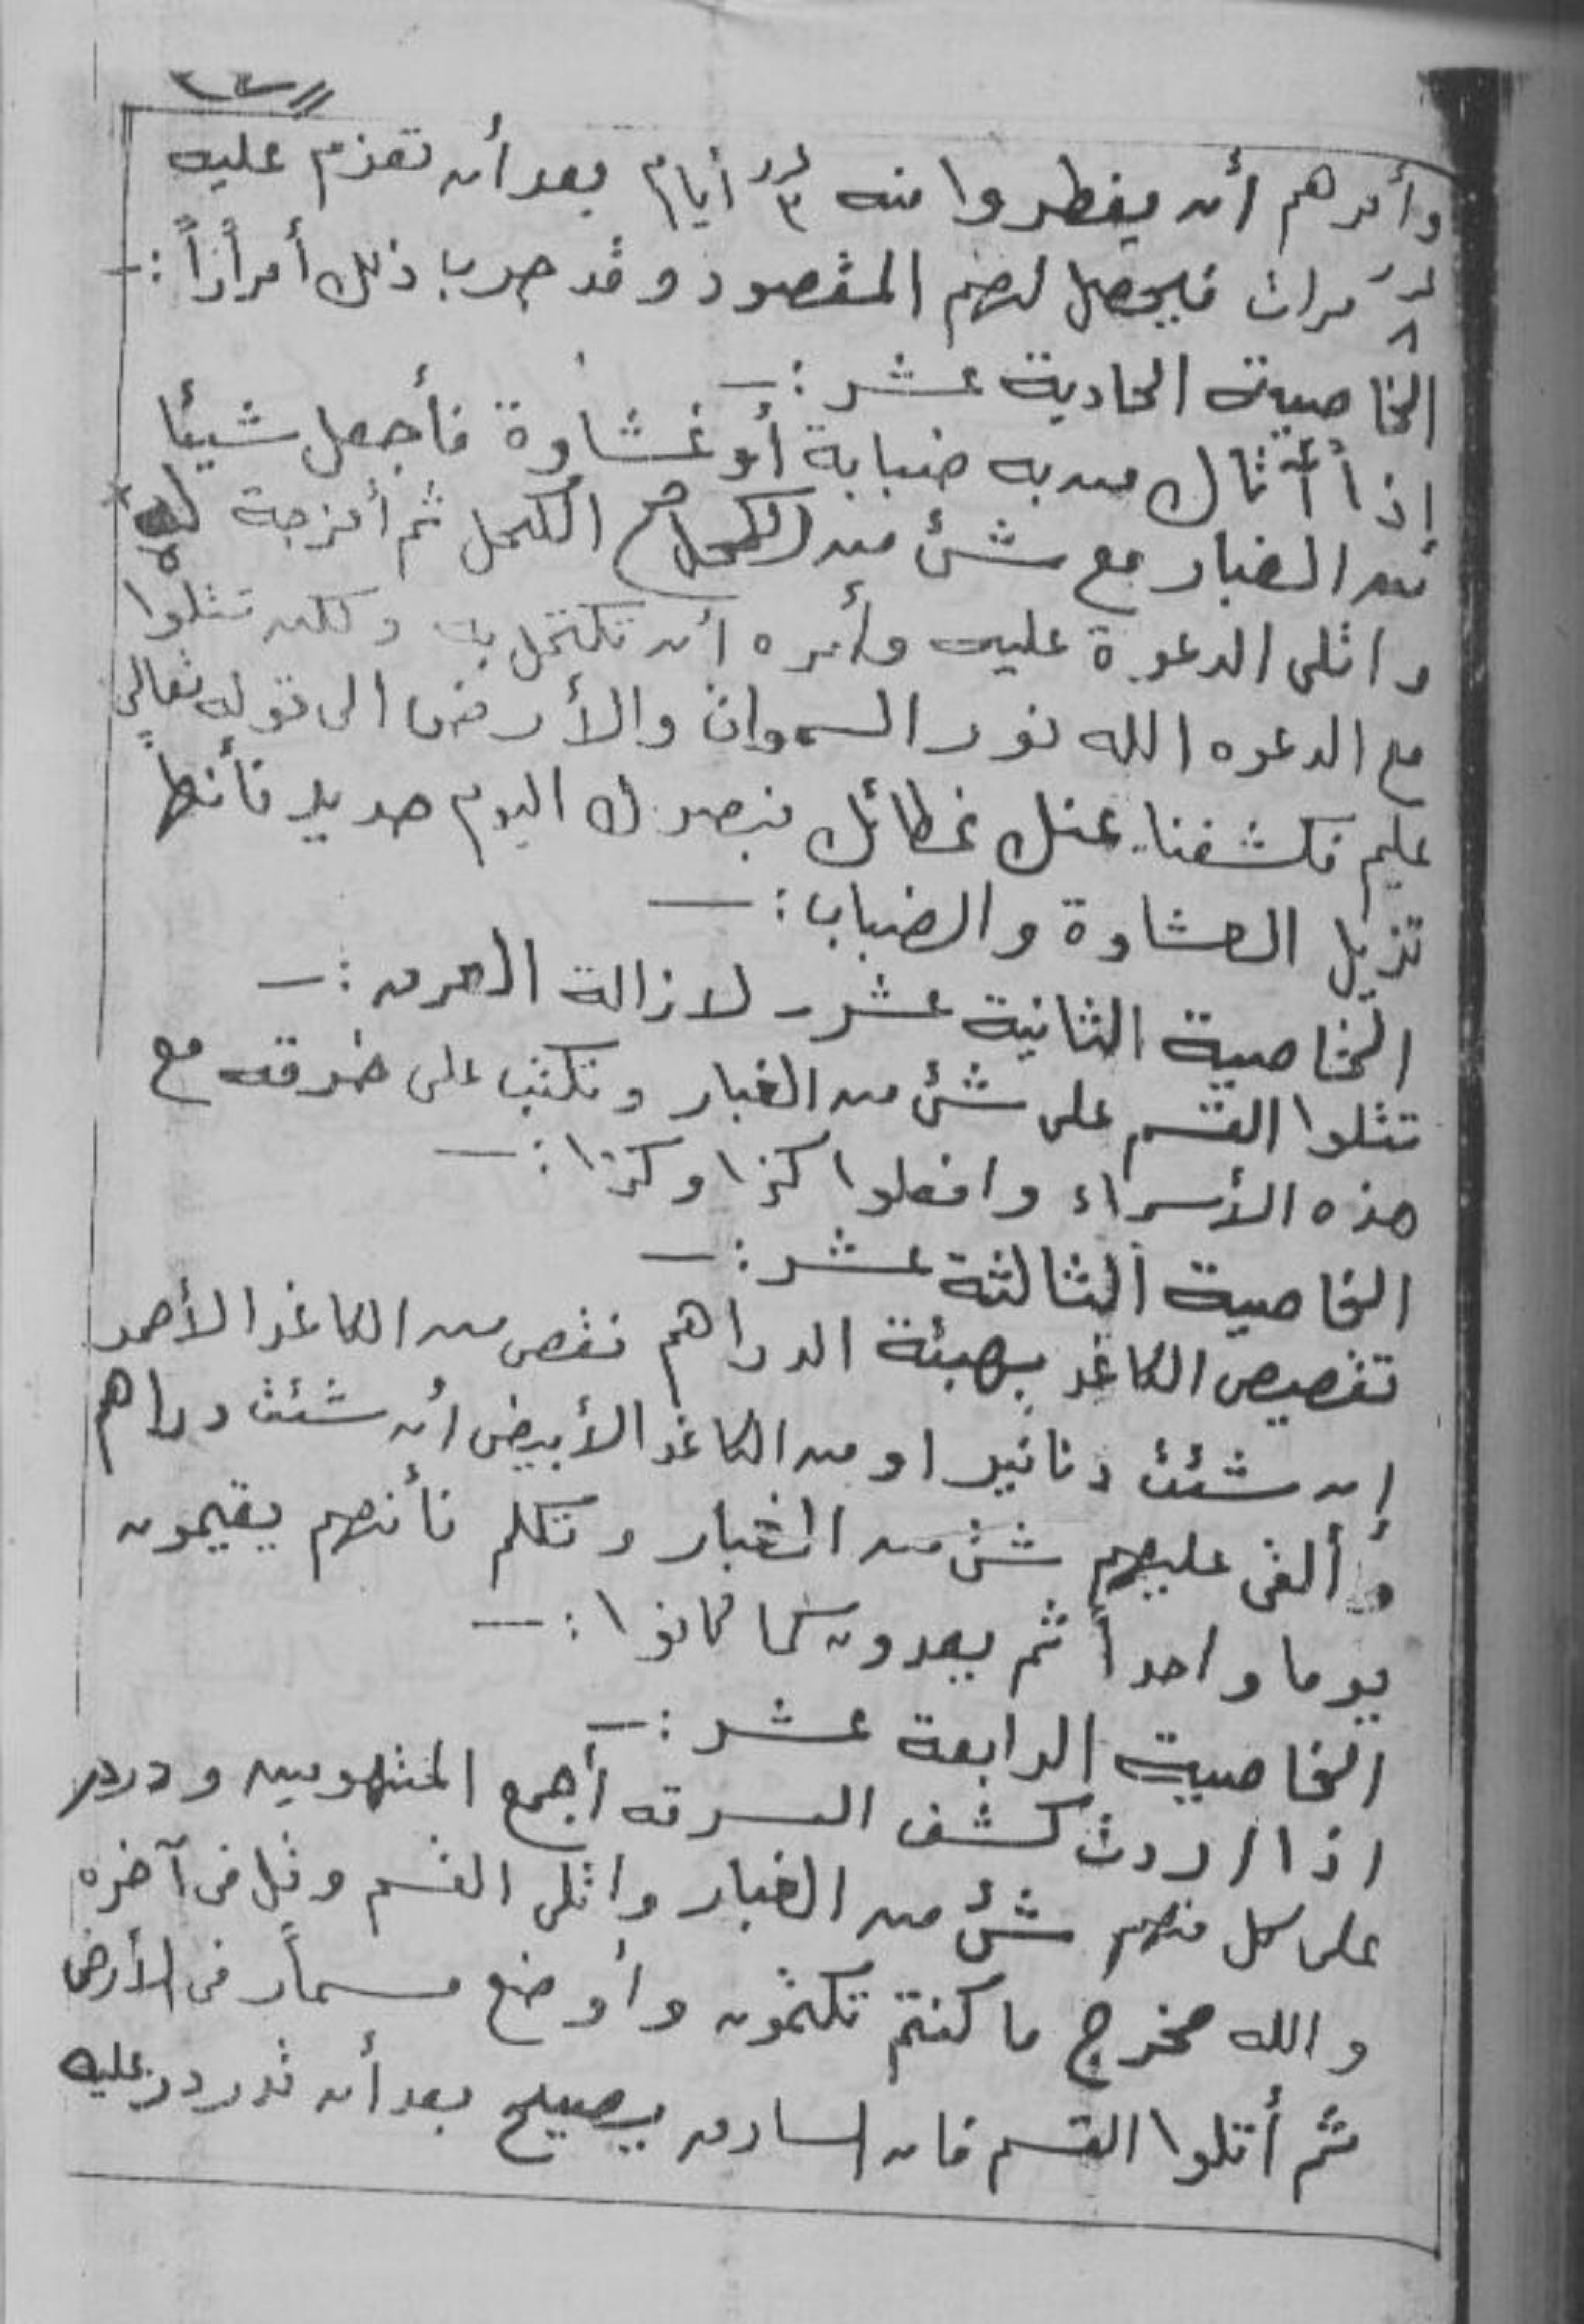 وأمرهم أن يفطروا منه ٣ أيام بعد أن تعزم عليه
٨ مرات فيحصل لهم المقصود وقد جرب ذلك أمراراً :-
الخاصية الحادية عشر :-
إذا أتاك من به ضبابة أو غشاوة فأجعل شيئا
من الغبار مع شئ من الكحل ثم أمزجة
واتلى الدعوة عليه وأمره أن تكتحل به ولكن تتلوا
مع الدعوه الله نور السموات والأرض الى قوله تعالى
عليم فكشفنا عنك غطائك فبصرك اليوم حديد فأنها
تزيل الغشاوة والضباب :-
الخاصية الثانية عشر - لازالة العرق :-
تتلوا القسم على شئ من الغبار وتكتب على خرقه مع
هذه الأسماء وافعلوا كذا وكذا :-
الخاصية الثالثة عشر :-
تقصيص الكاغد بهيئة الدراهم تقص من الكاغد الأحمر
ان شئت دنانير او من الكاغد الأبيض أن شئت دراهم
وألقى عليهم شئ من الغبار وتكلم فأنهم يقيمون
يوما واحداً ثم يعدون كما كانوا :-
الخاصية الرابعة عشر :-
اذا اردت كشف السرقه أجمع المتهومين ودردر
على كل منهم شئ من الغبار واتلى القسم وقل فى آخره
والله مخرج ما كنتم تكتمون وأوضع مسمار فى الأرض
ثم أتلوا القسم فان السارق يصيح بعد أن تدردر عليه